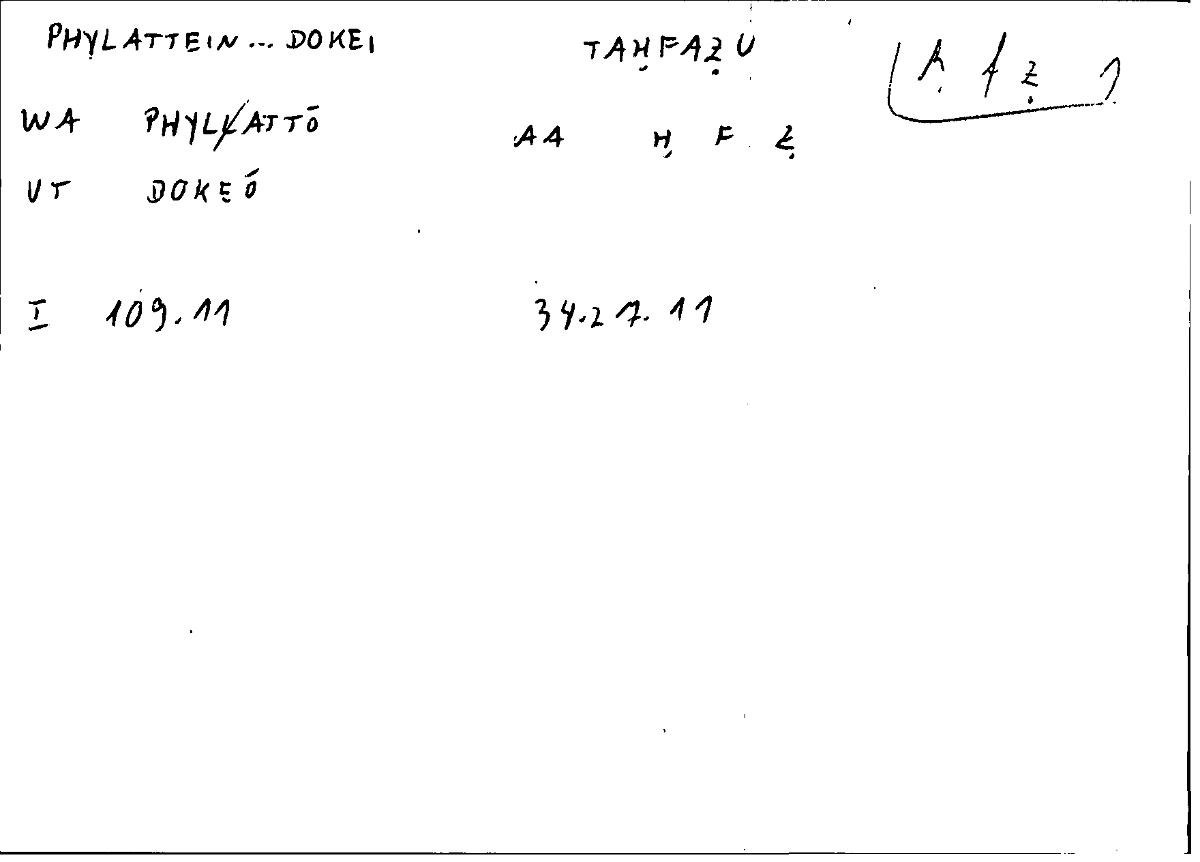 PHYLATTEIN... DOKEI TAḤFAẒU ḥ f ẓ 1
WA PHYLATTŌ AA Ḥ F Ẓ
UT DOKEŌ
I 109.11 34.27.11